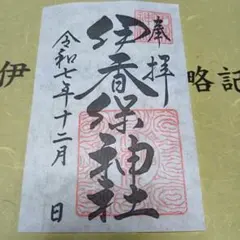 奉拝
伊香保神社
令和七年十二月 日
伊
略記